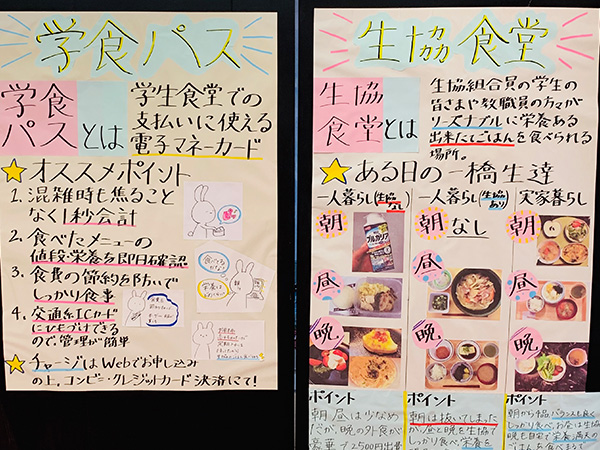 学食パス
学食
パスとは
学生食堂での
支払いに使える
電子マネーカード
オススメポイント
1. 混雑時も焦ること
なく1秒会計
2. 食べたメニューの
値段・栄養を即日確認
3. 食費の節約を防いで
しっかり食事
4. 交通系ICカード
にひもづけできる
ので管理が簡単
チャージはWebでお申し込み
の上、コンビニ・クレジットカード決済にて!
生協食堂
生協
食堂とは
生協組合員の学生の
皆さまや教職員の方々が
リーズナブルに栄養ある
出来たてごはんを食べられる
場所。
ある日の一橋生達
一人暮らし(生協なし)
朝
昼
晩
ポイント
朝、昼は少なめ
だが、晩の外食が
一人暮らし(生協あり)
朝 なし
昼
晩
ポイント
朝は抜いてしまった
が、昼と晩を生協で
しっかり食べ、栄養を
実家暮らし
朝
昼
晩
ポイント
朝から4品、バランスも良く
しっかり食べ、お昼は生協
晩も自宅で栄養満点の